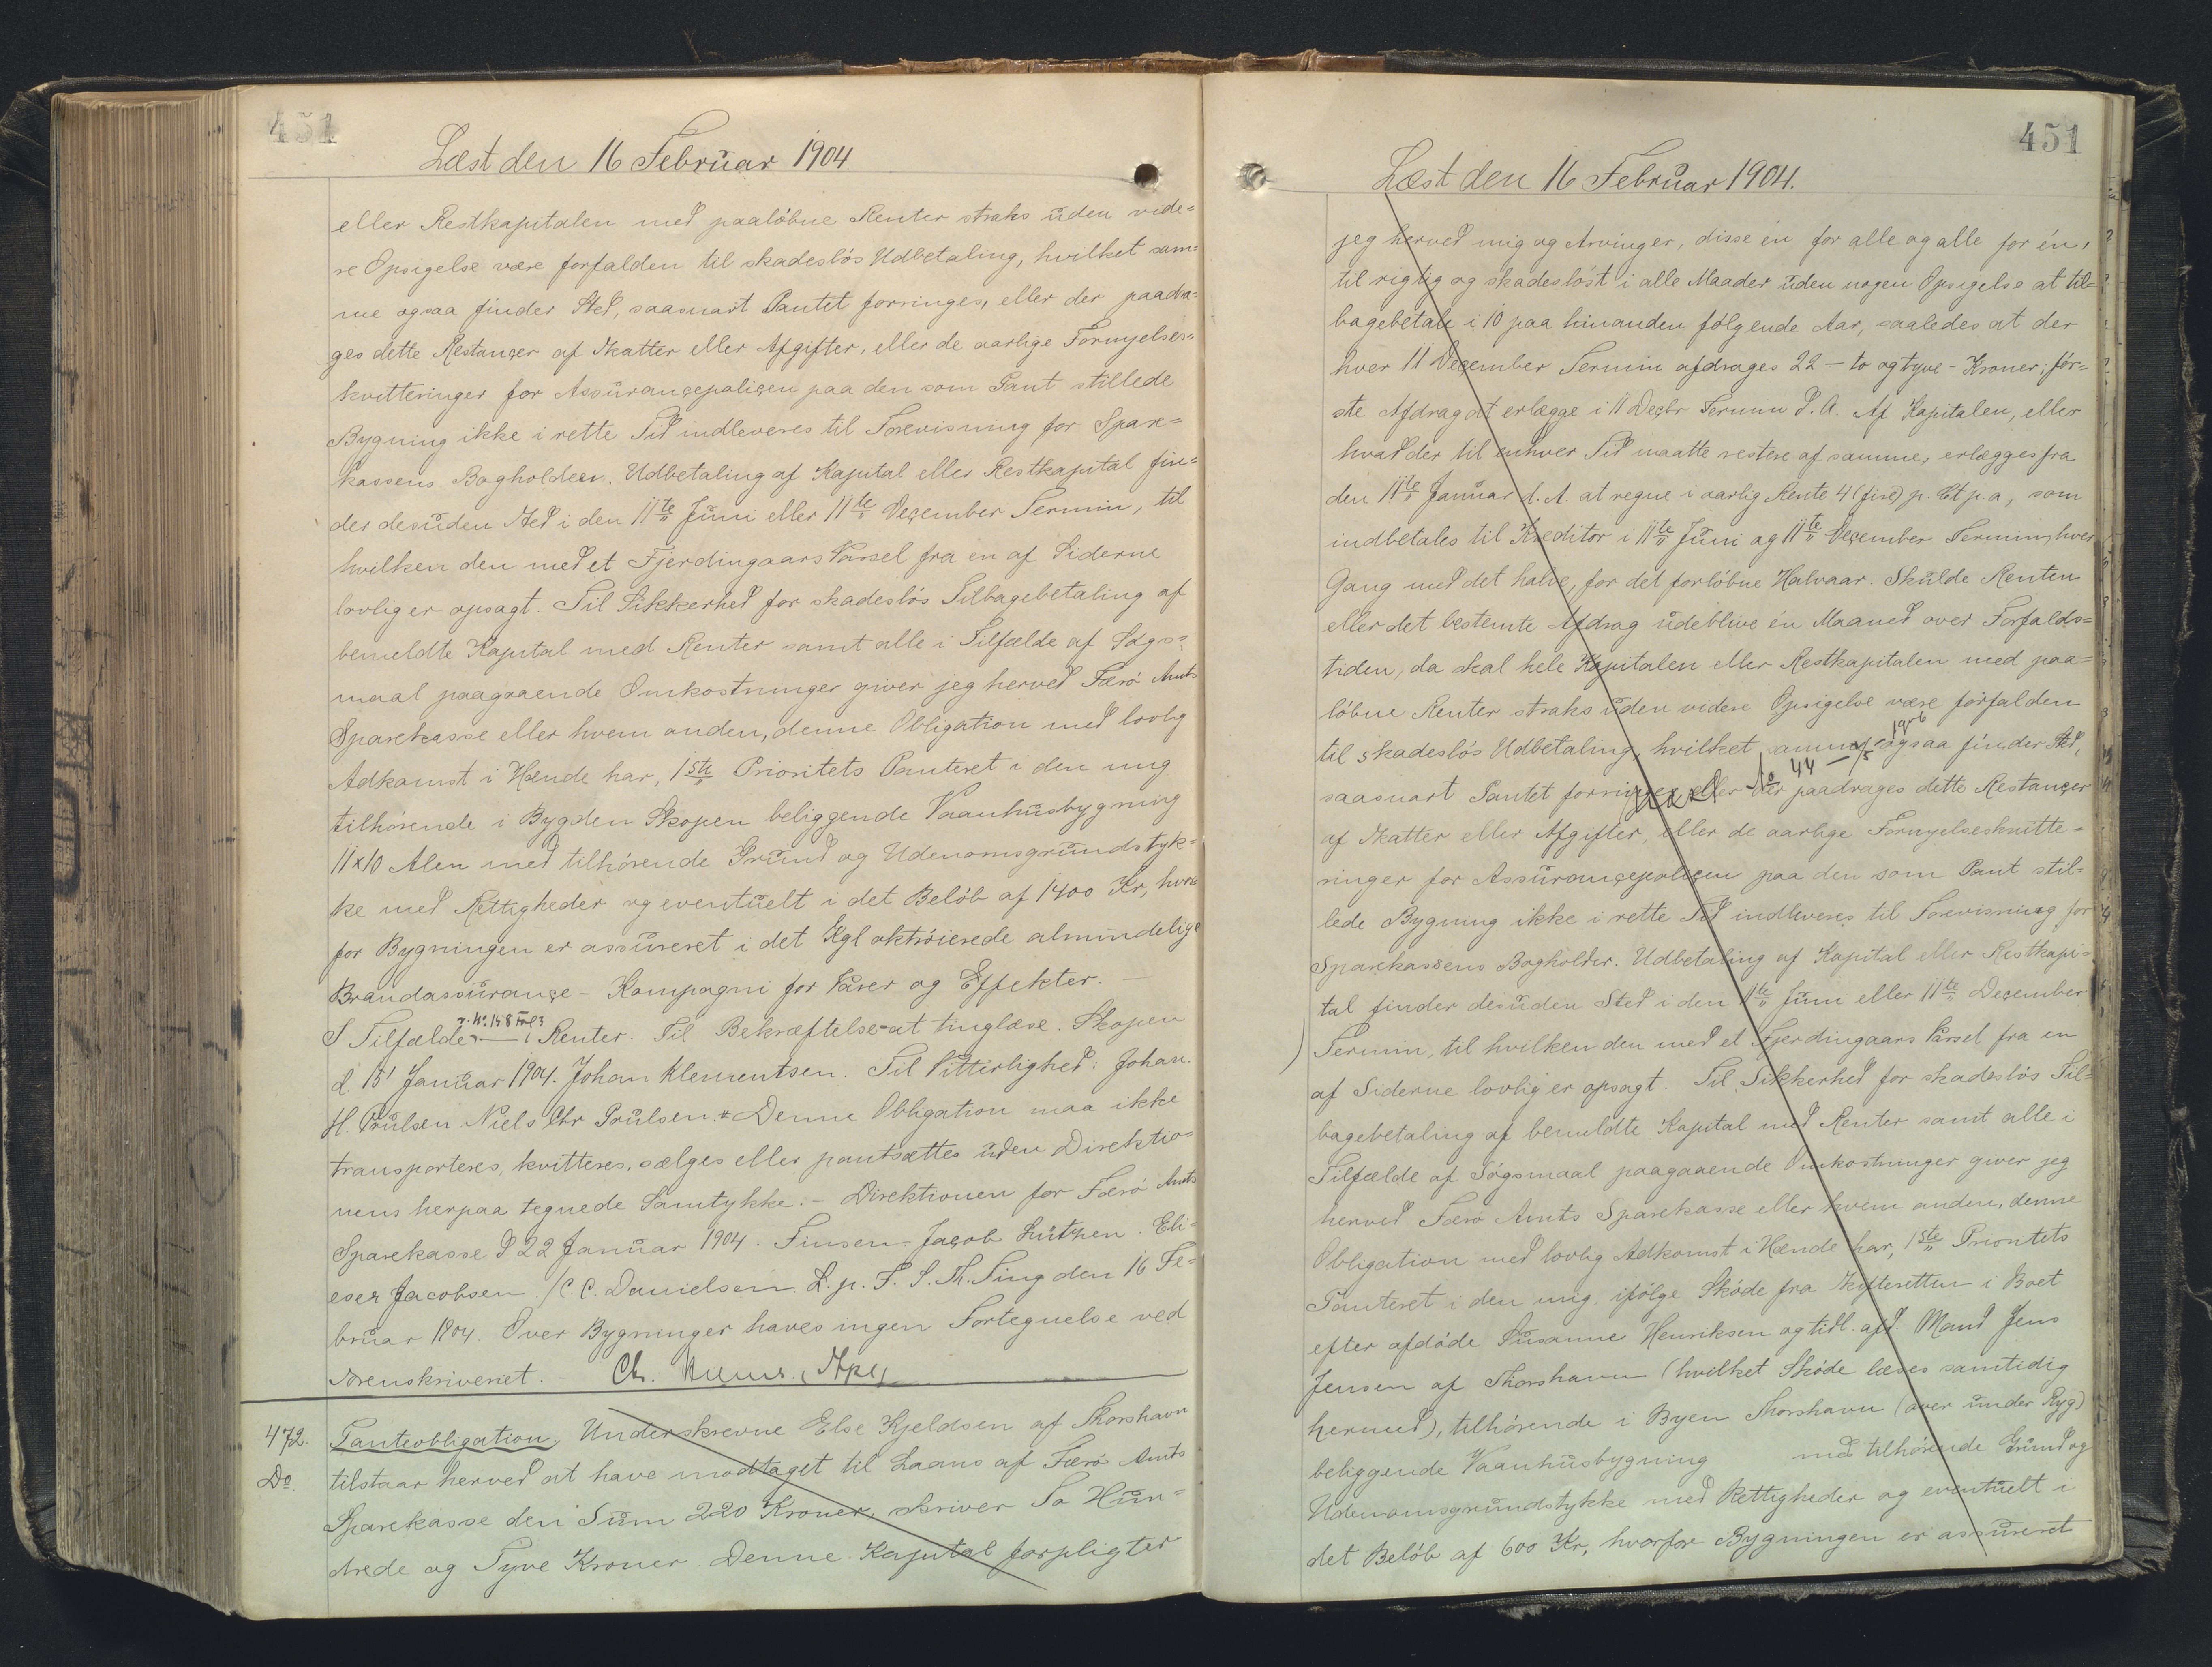 451
Læst den 16 Februar 1904.
eller Restkapitalen med paaløbne Renter straks uden vide=
re Opsigelse være forfalden til skadesløs Udbetaling, hvilket sam=
me ogsaa finder Sted, saasnart Pantet forringes, eller der paadra=
ges dette Restançer af Skatter eller Afgifter, eller de aarlige Fornyelses=
kvitteringer for Assurançepoliçen paa den som Pant stillede
Bygning ikke i rette Tid indleveres til Forevisning for Spare=
kassens Bogholder. Udbetaling af Kapital eller Restkapital fin=
der desuden Sted i den 11te Juni eller 11te Deçember Termin, til
hvilken den med et Fjerdingaars Varsel fra en af Siderne
lovlig er opsagt. Til Sikkerhed for skadesløs Tilbagebetaling af
bemeldte Kapital med Renter samt alle i Tilfælde af Søgs=
maal paagaaende Omkostninger giver jeg herved Færø Amts
Sparekasse eller hvem anden, denne Obligation med lovlig
Adkomst i Hænde har, 1ste Prioritets Panteret i den mig
tilhørende i Bygden Skopen beliggende Vaanhusbygning
11x10 Alen med tilhørende Grund og Udenomsgrundstyk=
ke med Rettigheder og eventuelt i det Beløb af 1400 Kr, hvor
for Bygningen er assureret i det Kgl oktroierede almindelige
Brandassurançe-Kompagni for Varer og Effekter.
I Tilfælde — Renter. Til Bekræftelse at tinglæse. Skopen
d. 15' Januar 1904. Johan Klementsen. Til Vitterlighed: Johan.
H. Poulsen Niels Chr Poulsen. Denne Obligation maa ikke
transporteres, kvitteres, sælges eller pantsættes uden Direktio=
nens herpaa tegnede Samtykke. - Direktionen for Færø Amts
Sparekasse d 22 Januar 1904. Finsen. Jaçob Lützen. Eli=
eser Jacobsen. /C. C. Danielsen. L. p. T. S. Th. Ting den 16 Fe=
bruar 1904. Over Bygninger haves ingen Fortegnelse ved
Sorenskriveriet.
472.
Do.
Panteobligation. Underskrevne Else Kjeldsen af Thorshavn
tilstaar herved at have modtaget til Laans af Færø Amts
Sparekasse den Sum 220 Kroner, skriver To Hun=
drede og Tyve Kroner. Denne Kapital forpligter
451
Læst den 16 Februar 1904.
jeg herved mig og Arvinger, disse én for alle og alle for én,
til rigtig og skadesløst i alle Maader uden nogen Opsigelse at til=
bagebetale i 10 paa hinanden følgende Aar, saaledes at der
hver 11 Deçember Termin afdrages 22 - to og tyve - Kroner; før=
ste Afdrag at erlægge i 11 Deçbr Termin d. A. Af Kapitalen, eller
hvad der til enhver Tid maatte restere af samme, erlægges fra
den 11te Januar d. A. at regne i aarlig Rente 4 (fire) p. Ct p. a, som
indbetales til Kreditor i 11te Juni og 11te Deçember Termin, hver
Gang med det halve, for det forløbne Halvaar. Skulde Renten
eller det bestemte Afdrag udeblive én Maaned over Forfalds=
tiden, da skal hele Kapitalen eller Restkapitalen med paa=
løbne Renter straks uden videre Opsigelse være forfalden
til skadesløs Udbetaling, hvilket samme ogsaa finder Sted,
saasnart Pantet forringes eller der paadrages dette Restançer
af Skatter eller Afgifter, eller de aarlige Fornyelseskvitte=
ringer for Assurançepoliçen paa den som Pant stil=
lede Bygning ikke i rette Tid indleveres til Forevisning for
Sparekassens Bogholder. Udbetaling af Kapital eller Restkapi=
tal finder desuden Sted i den 11te Juni eller 11te Deçember
Termin, til hvilken den med et Fjerdingaars Varsel fra en
af Siderne lovlig er opsagt. Til Sikkerhed for skadesløs Til=
bagebetaling af bemeldte Kapital med Renter samt alle i
Tilfælde af Søgsmaal paagaaende Omkostninger giver jeg
herved Færø Amts Sparekasse eller hvem anden, denne
Obligation med lovlig Adkomst i Hænde har, 1ste Prioritets
Panteret i den mig, ifølge Skøde fra Skifteretten i Boet
efter afdøde Susanne Henriksen og tidl. afd. Mand Jens
Jensen af Thorshavn (hvilket Skøde læses samtidig
hermed), tilhørende i Byen Thorshavn (over under Ryg)
beliggende Vaanhusbygning med tilhørende Grund og
Udenomsgrundstykke med Rettigheder og eventuelt i
det Beløb af 600 Kr, hvorfor Bygningen er assureret